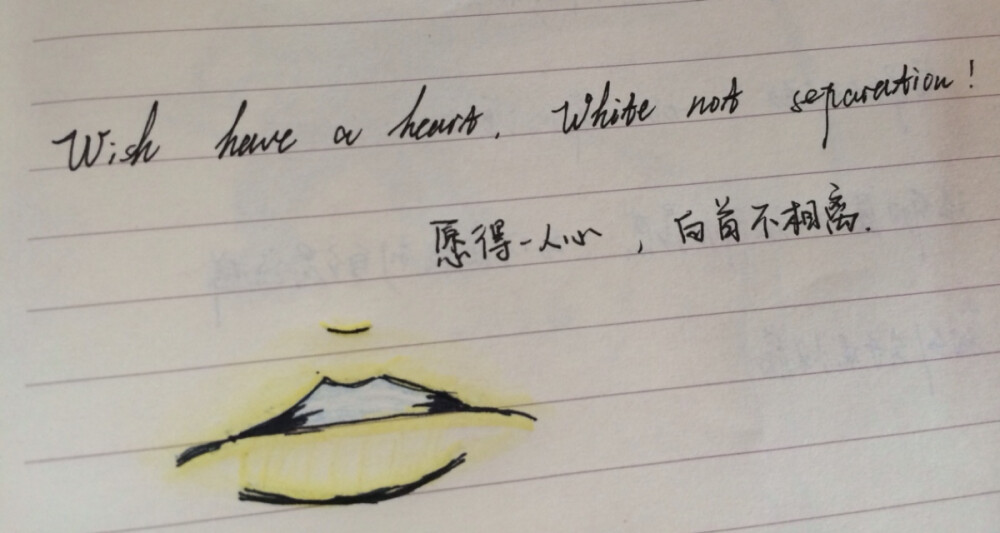 Wish have a heart. White not separation!
愿得一人心，白首不相离.